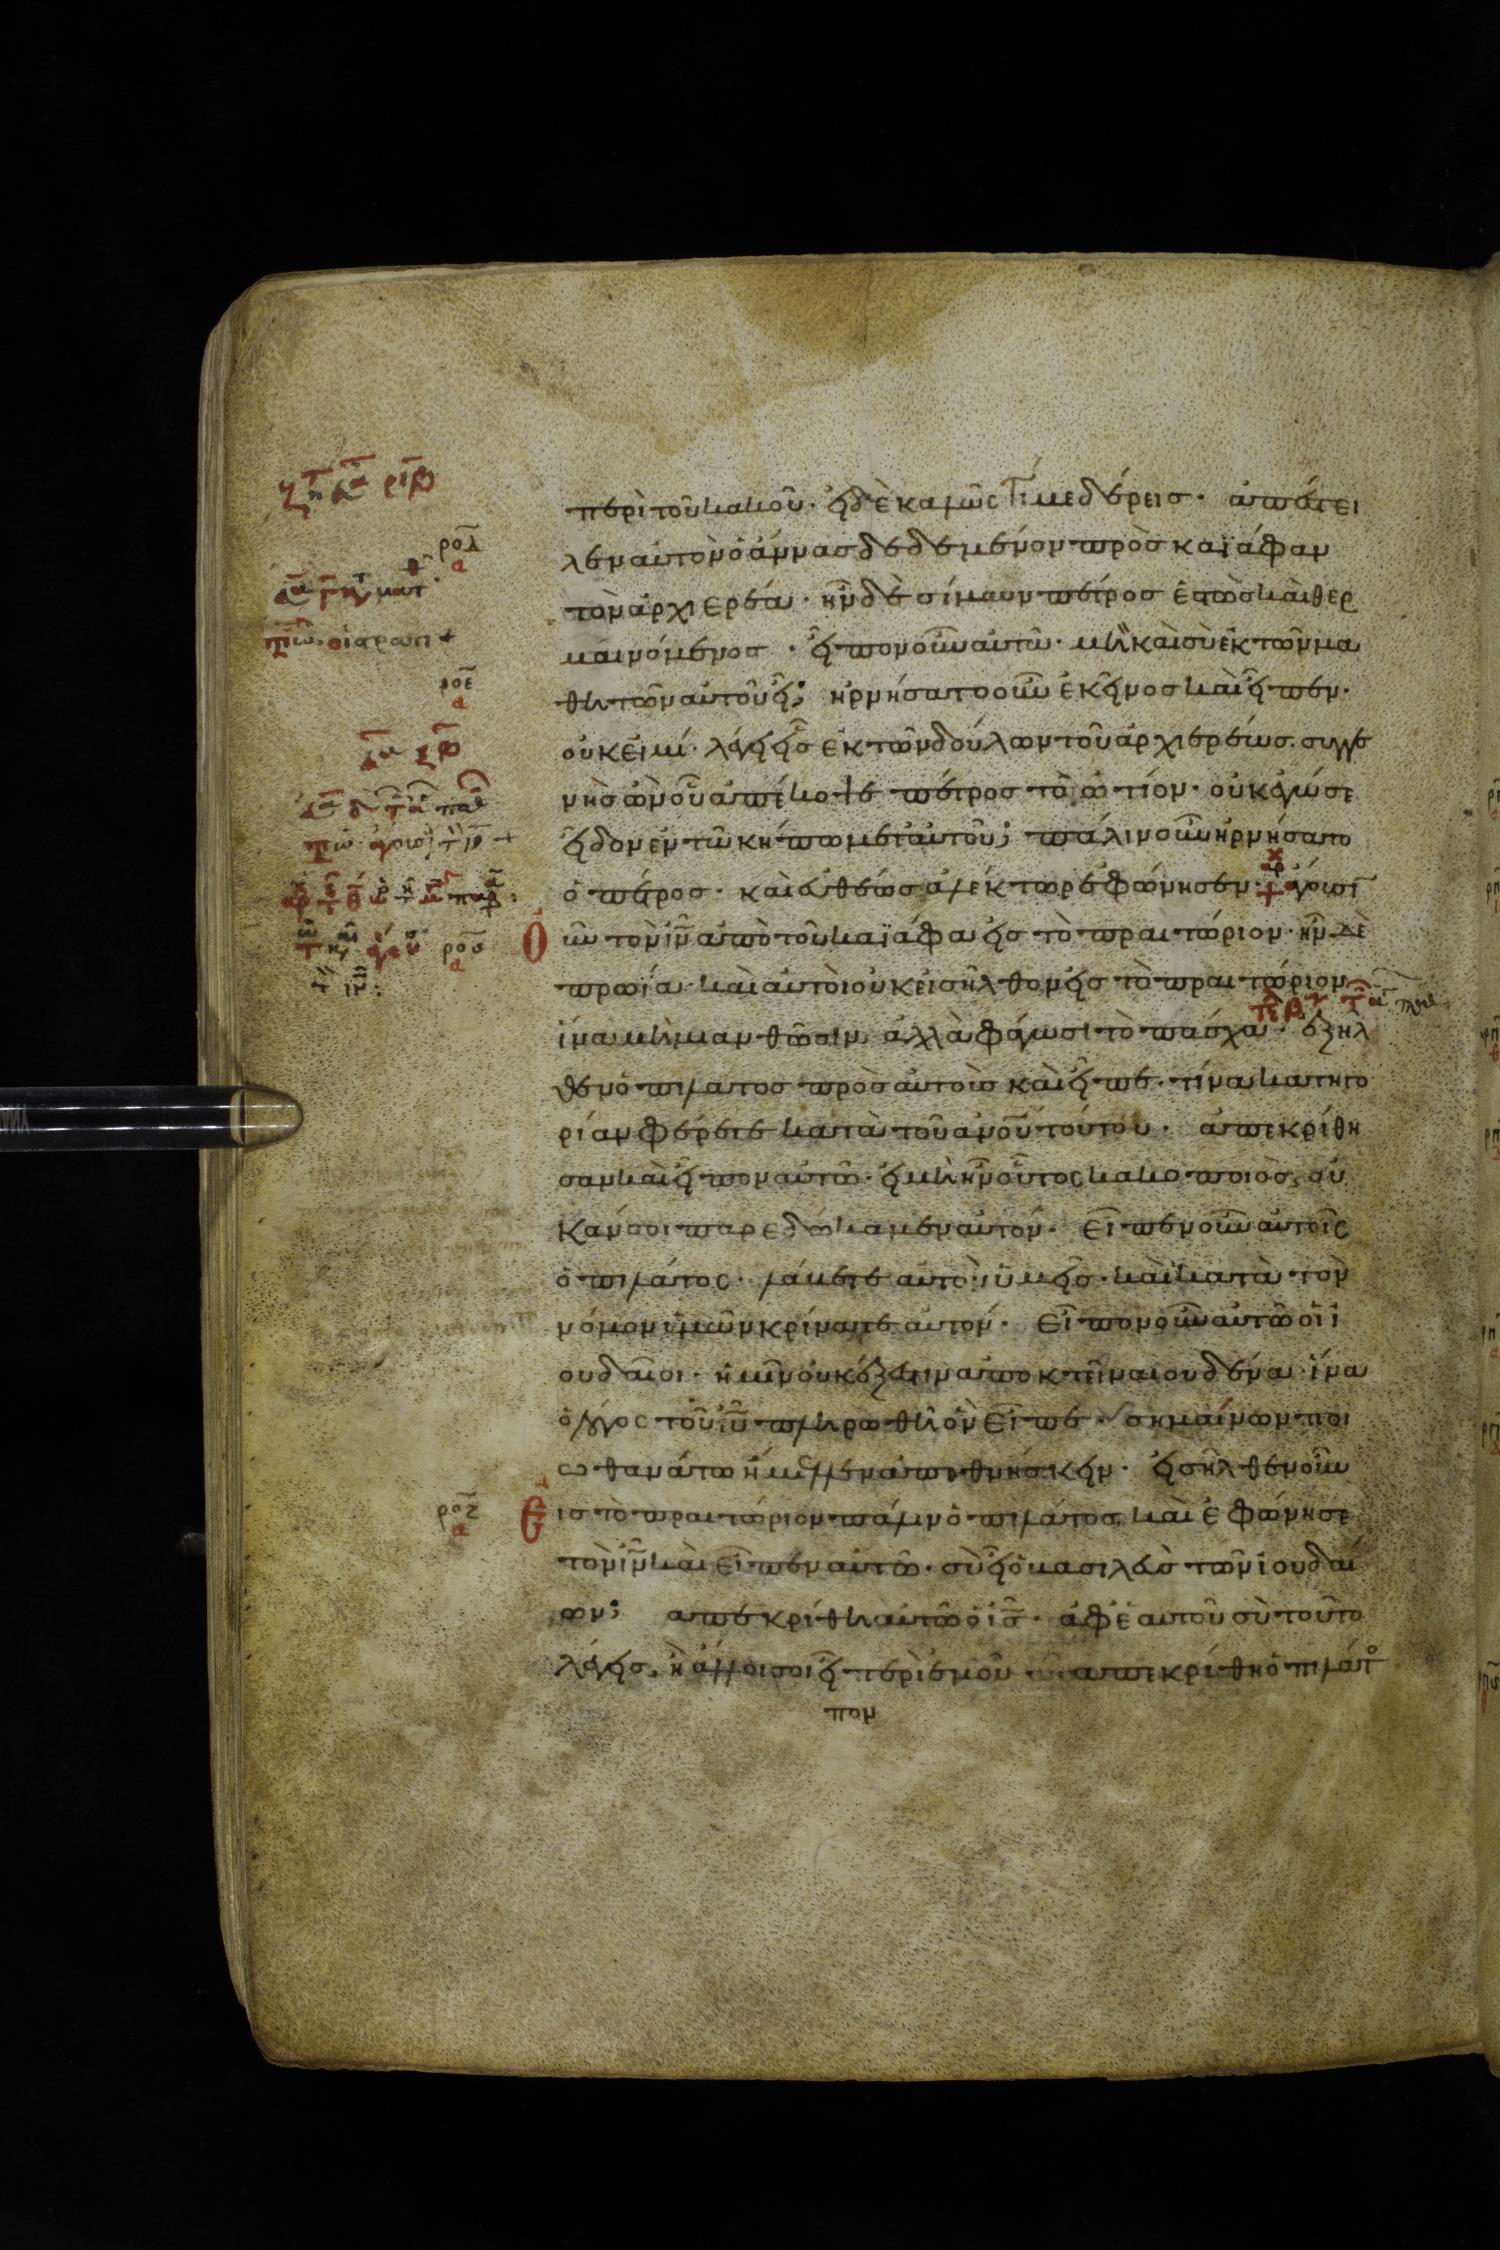 περὶ τοῦ κακοῦ· εἰ δὲ καλῶς τί με δέρεις· ἀπέστει
λεν αὐτὸν ὁ ἄννας δεδεμένον πρὸς καϊάφαν
τὸν ἀρχιερέα· ἦν δὲ σίμων πέτρος ἑστὼς καὶ θερ
μαινόμενος· εἶπον οὖν αὐτῶ· μὴ καὶ σὺ ἐκ τῶν μα
θητῶν αὐτοῦ εἶ; ἠρνήσατο οὖν ἐκεῖνος καὶ εἶπεν·
οὐκ εἰμί· λέγει εἷς ἐκ τῶν δούλων τοῦ ἀρχιερέως· συγγε
νὴς ὢν οὗ ἀπέκοψε πέτρος τὸ ὠτίον· οὐκ ἐγώ σε
εἶδον ἐν τῶ κήπω μετ' αὐτοῦ; πάλιν οὖν ἠρνήσατο
ὁ πέτρος· καὶ εὐθέως ἀλέκτωρ ἐφώνησεν· ἄγουσι
οὖν τὸν ἰν ἀπὸ τοῦ καϊάφα εἰς τὸ πραιτώριον· ἦν δὲ
πρωΐα· καὶ αὐτοὶ οὐκ εἰσῆλθον εἰς τὸ πραιτώριον
ἵνα μὴ μιανθῶσιν ἀλλὰ φάγωσι τὸ πάσχα· ἐξῆλ
θεν ὁ πιλάτος πρὸς αὐτοὺς καὶ εἶπε· τίνα κατηγο
ρίαν φέρετε κατὰ τοῦ ἀνου τούτου· ἀπεκρίθη
σαν καὶ εἶπον αὐτῶ· εἰ μὴ ἦν οὗτος κακοποιὸς, οὐ
κ ἄν σοι παρεδώκαμεν αὐτόν· εἶπεν οὖν αὐτοῖς
ὁ πιλάτος· λάβετε αὐτὸν ὑμεῖς· καὶ κατὰ τὸν
νόμον ὑμῶν κρίνατε αὐτόν· εἶπον οὖν αὐτῶ οἱ ἰ
ουδαῖοι· ἡμῖν οὐκ ἔξεστιν ἀποκτεῖναι οὐδένα· ἵνα
ὁ λόγος τοῦ ιυ πληρωθῆ ὃν εἶπε· σημαίνων ποί
ω θανάτω ἤμελλεν ἀποθνήσκειν· εἰσῆλθεν οὖν
εἰς τὸ πραιτώριον πάλιν ὁ πιλάτος καὶ ἐφώνησε
τὸν ἰν καὶ εἶπεν αὐτῶ· σὺ εἶ ὁ βασιλεὺς τῶν ἰουδαί
ων; ἀπεκρίθη αὐτῶ ὁ ἰς· ἀφ' ἑαυτοῦ σὺ τοῦτο
λέγεις, ἢ ἄλλοι σοι εἶπον περὶ ἐμοῦ ἀπεκρίθη ὁ πιλάτο
πον